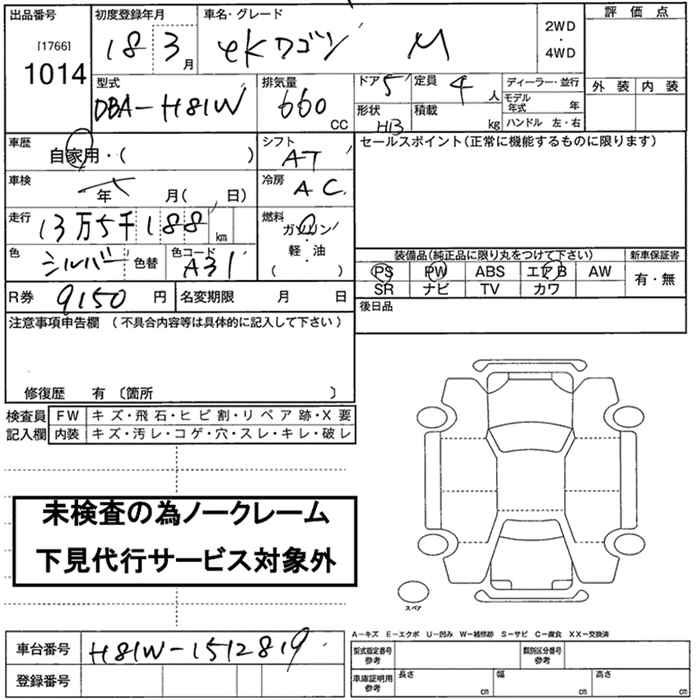 出品番号 初度登録年月 車名・グレード 評価点
[1766]
1014
18 3月
eKワゴン M
2WD・4WD
外装 内装
型式 排気量 ドア 5 定員 4人 ディーラー・並行
DBA-H81W 660 CC
形状 HB 積載 kg
モデル年式 年
ハンドル 左・右
車歴 自家用・( )
シフト AT
セールスポイント(正常に機能するものに限ります)
車検 年 月( 日)
冷房 AC
走行 13万5千188 km
燃料 ガソリン・軽・油 ( )
色 シルバー 色替 色コード A31
装備品(純正品に限り丸をつけて下さい) 新車保証書
PS PW ABS エアB AW 有・無
SR ナビ TV カワ
R券 9150 円 名変期限 月 日
後日品
注意事項申告欄 (不具合内容等は具体的に記入して下さい)
修復歴 有 〔箇所 〕
検査員記入欄
FW キズ・飛石・ヒビ割・リペア跡・X要
内装 キズ・汚レ・コゲ・穴・スレ・キレ・破レ
未検査の為ノークレーム
下見代行サービス対象外
スペア
A-キズ E-エクボ U-凹み W-補修跡 S-サビ C-腐食 XX-交換済
車台番号 H81W-1512819
登録番号
型式指定番号参考 類別区分番号参考
車庫証明用参考 長さ cm 幅 cm 高さ cm